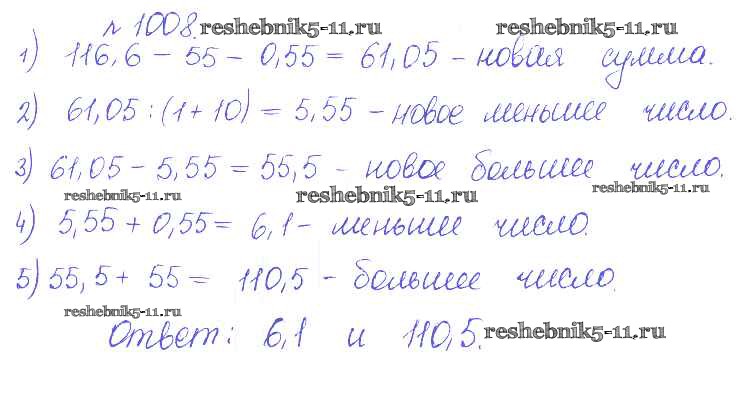 № 1008. reshebnik5-11.ru reshebnik5-11.ru
1) 116,6 - 55 - 0,55 = 61,05 - новая сумма.
2) 61,05 : (1 + 10) = 5,55 - новое меньшее число.
3) 61,05 - 5,55 = 55,5 - новое большее число.
reshebnik5-11.ru reshebnik5-11.ru reshebnik5-11.ru
4) 5,55 + 0,55 = 6,1 - меньшее число.
5) 55,5 + 55 = 110,5 - большее число.
reshebnik5-11.ru
Ответ: 6,1 и 110,5. reshebnik5-11.ru